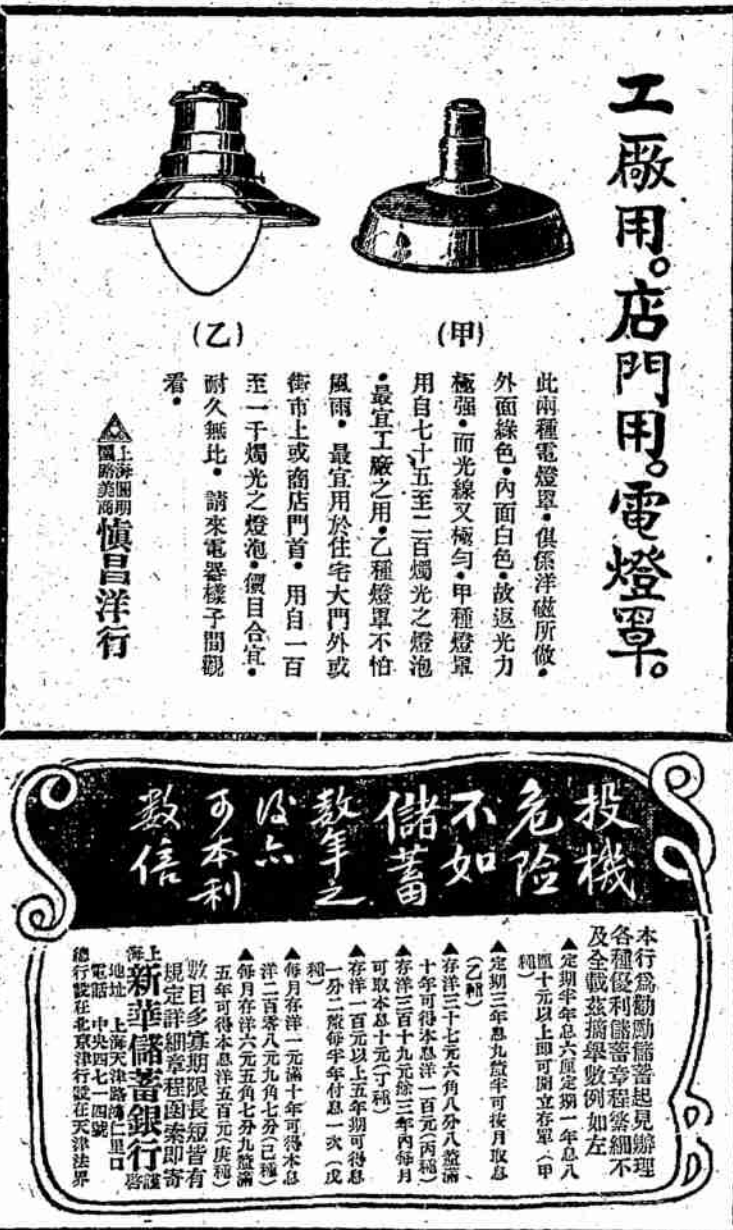 工廠用。店門用。電燈罩。
(甲)
(乙)
此兩種電燈罩•俱係洋磁所做•
外面綠色•內面白色•故返光力
極强•而光線又極勻•甲種燈罩
用自七十五至二百燭光之燈泡
•最宜工廠之用•乙種燈罩不怕
風雨•最宜用於住宅大門外或
街市上或商店門首•用自一百
至一千燭光之燈泡•價目合宜•
耐久無比•請來電器樣子間觀
看•
上海圓明
園路美商
慎昌洋行
投機
危险
不如
儲蓄
数年之
後亦
可本利
数倍
本行爲勸勵儲蓄起見辦理
各種優利儲蓄章程繁細不
及全載茲摘舉數例如左
▲定期半年息六厘定期一年息八
厘十元以上即可開立存單(甲
種)
▲定期三年息九釐半可按月取息
(乙種)
▲存洋三十七元六角八分八釐滿
十年可得本息洋一百元(丙種)
▲存洋三百十九元餘三年內每月
可取本息十元(丁種)
▲存洋一百元以上五年期可得息
一分二釐每半年付息一次(戊
種)
▲每月存洋一元滿十年可得本息
洋二百零八元九角七分(己種)
▲每月存洋六元五角七分九釐滿
五年可得本息洋五百元(庚種)
數目多寡期限長短皆有
規定詳細章程函索即寄
上海新華儲蓄銀行謹啓
地址 上海天津路鴻仁里口
電話 中央四七一四號
總行設在北京津行設在天津法界